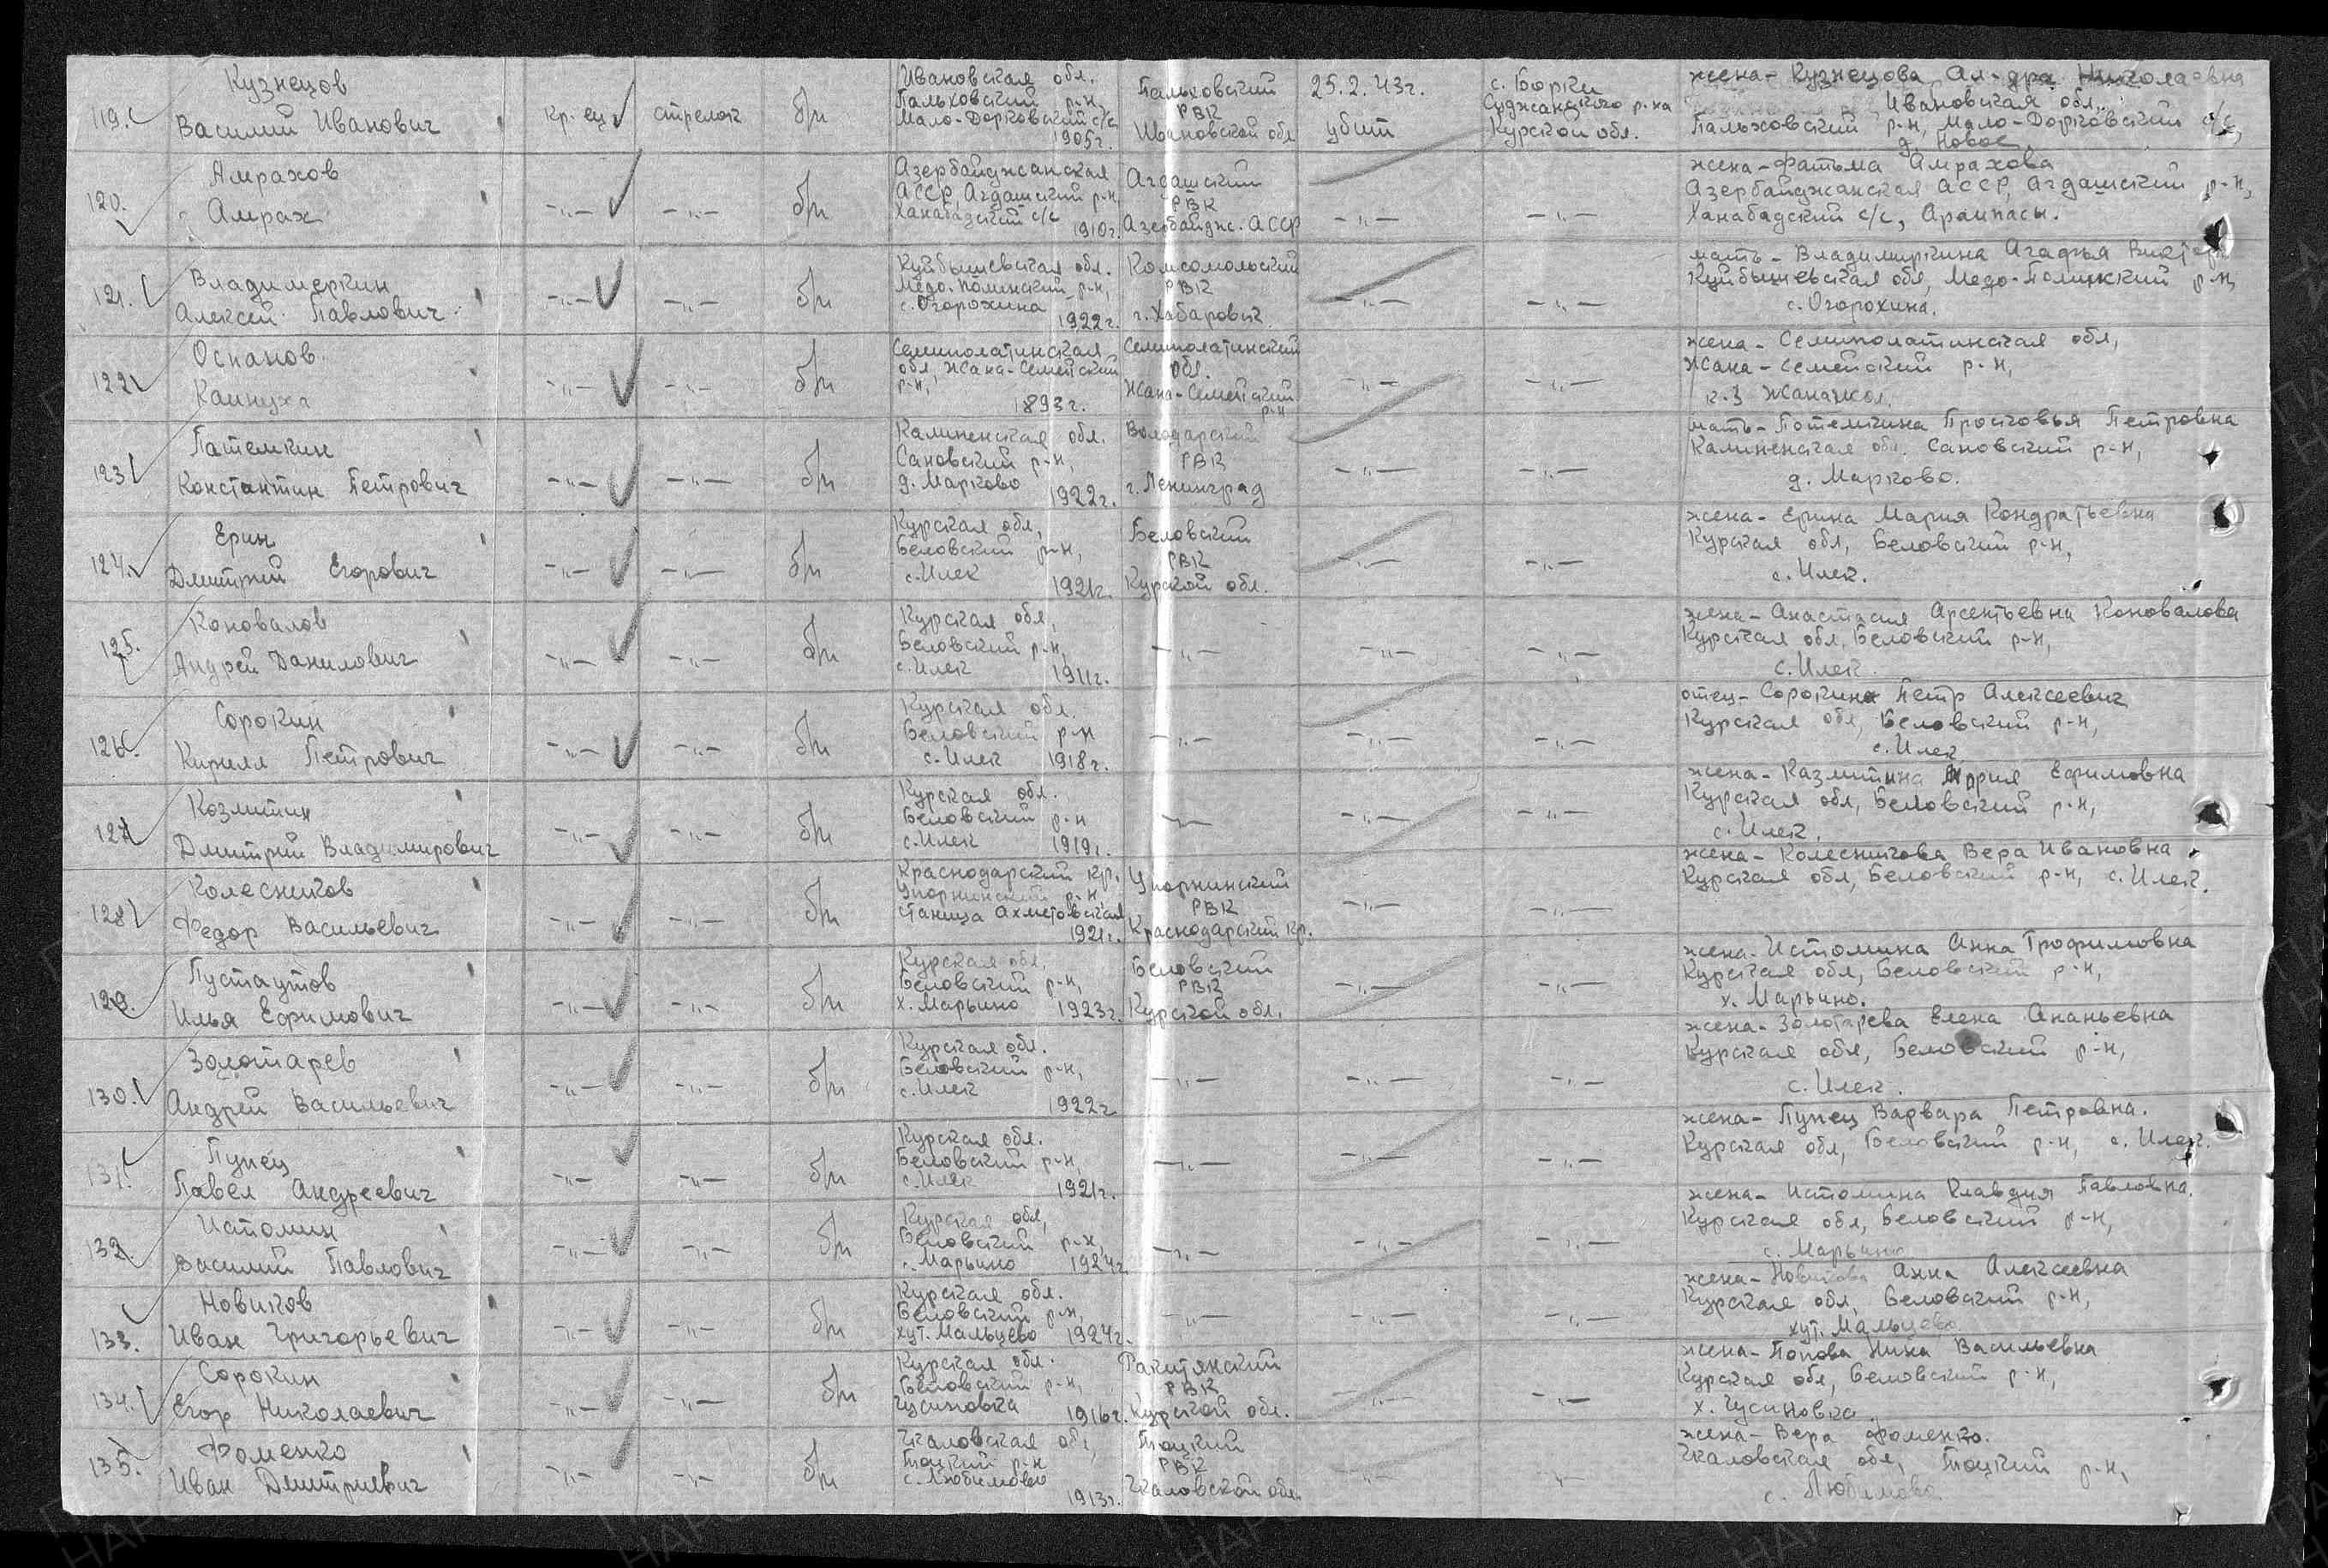 119. Кузнецов
Василий Иванович
кр-ец стрелок б/п
Ивановская обл.
Пальховский р-н,
Мало-Дорковский с/с
1905г.
Пальховский
РВК
Ивановской обл
25.2.43г.
убит
с. Борки
Суджанского р-на
Курской обл.
жена - Кузнецова Ал-дра Николаевна
Ивановская обл.
Пальховский р-н, Мало-Дорковский с/с,
д. Новое
120. Амрахов
Амрах
-"- -"- б/п
Азербайджанская
АССР, Агдашский р-н,
Ханабадский с/с
1910г.
Агдашский
РВК
Азербайдж. АССР
-"- -"-
жена - Фатьма Амрахова
Азербайджанская АССР, Агдашский р-н,
Ханабадский с/с, Арампасы.
121. Владимеркин
Алексей Павлович
-"- -"- б/п
Куйбышевская обл.
р-н,
с. Огорохина
1922г.
Комсомольский
РВК
г. Хабаровск
-"- -"-
мать - Владимиркина Агафья
Куйбышевская обл, р-н,
с. Огорохина.
122. Оспанов
-"- -"- б/п
Семиполатинская
обл, Жана-Семейский
р-н,
1893г.
Семиполатинский
обл.
Жана-Семейский
р-н
-"- -"-
жена - Семиполатинская обл,
Жана-семейский р-н,
к-з Жанажол.
123. Патемкин
Константин Петрович
-"- -"- б/п
Калиненская обл.
Сановский р-н,
д. Марково
1922г.
Володарский
РВК
г. Ленинград
-"- -"-
мать - Потемкина Просковья Петровна
Калиненская обл. Сановский р-н,
д. Марково.
124. Ерин
Дмитрий Егорович
-"- -"- б/п
Курская обл,
Беловский р-н,
с. Илек
1921г.
Беловский
РВК
Курской обл.
-"- -"-
жена - Ерина Мария Кондратьевна
Курская обл, Беловский р-н,
с. Илек.
125. Коновалов
Андрей Данилович
-"- -"- б/п
Курская обл,
Беловский р-н,
с. Илек
1911г.
-"- -"- -"-
жена - Анастасия Арсентьевна Коновалова
Курская обл, Беловский р-н,
с. Илек
126. Сорокин
Кирилл Петрович
-"- -"- б/п
Курская обл.
Беловский р-н
с. Илек 1918г.
-"- -"- -"-
отец - Сорокина Петр Алексеевич
Курская обл, Беловский р-н,
с. Илек
127. Козмитин
Дмитрий Владимирович
-"- -"- б/п
Курская обл.
Беловский р-н
с. Илек 1919г.
-"- -"- -"-
жена - Казмитина Мария Ефимовна
Курская обл, Беловский р-н,
с. Илек.
128. Колесников
Федор Васильевич
-"- -"- б/п
Краснодарский кр.
Упорнинский р-н,
станица Ахметовская
1921г.
Упорнинский
РВК
Краснодарский кр.
-"- -"-
жена - Колесникова Вера Ивановна
Курская обл, Беловский р-н, с. Илек.
129. Пустаутов
Илья Ефимович
-"- -"- б/п
Курская обл,
Беловский р-н,
х. Марьино 1923г.
Беловский
РВК
Курской обл.
-"- -"-
жена - Истомина Анна Трофимовна
Курская обл, Беловский р-н,
х. Марьино.
130. Золотарев
Андрей Васильевич
-"- -"- б/п
Курская обл.
Беловский р-н,
с. Илек
1922г
-"- -"- -"-
жена - Золотарева Елена Ананьевна
Курская обл, Беловский р-н,
с. Илек.
131. Пупец
Павел Андреевич
-"- -"- б/п
Курская обл.
Беловский р-н,
с. Илек
1921г.
-"- -"- -"-
жена - Пупец Варвара Петровна.
Курская обл, Беловский р-н, с. Илек.
132. Истомин
Василий Павлович
-"- -"- б/п
Курская обл,
Беловский р-н,
с. Марьино 1924г.
-"- -"- -"-
жена - Истомина Клавдия Павловна.
Курская обл, Беловский р-н,
с. Марьино
133. Новиков
Иван Григорьевич
-"- -"- б/п
Курская обл.
Беловский р-н,
хут. Мальцево 1924г.
-"- -"- -"-
жена - Новикова Анна Алексеевна
Курская обл, Беловский р-н,
хут. Мальцево.
134. Сорокин
Егор Николаевич
-"- -"- б/п
Курская обл.
Беловский р-н,
Гусиновка 1916г.
Ракитянский
РВК
Курской обл.
-"- -"-
жена - Попова Нина Васильевна
Курская обл, Беловский р-н,
х. Гусиновка
135. Фоменко
Иван Дмитриевич
-"- -"- б/п
Чкаловская обл,
Тоцкий р-н
с. Любимово
1913г.
Тоцкий
РВК
Чкаловской обл.
-"- -"-
жена - Вера Фоменко.
Чкаловская обл, Тоцкий р-н,
с. Любимово